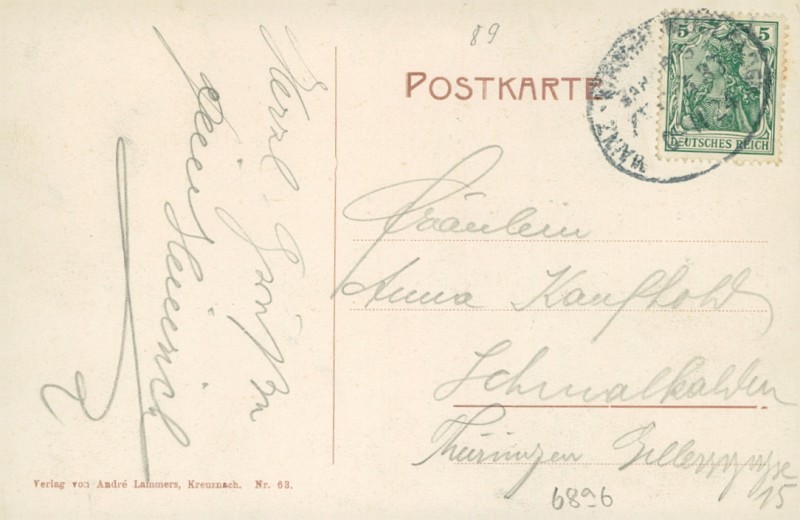 89
POSTKARTE
5 5
DEUTSCHES REICH
MAINZ
Herzl. Grüße
Dein Heinrich
Fräulein
Anna Kaufhold
Schmalkalden
Thüringen
15
Verlag von André Lammers, Kreuznach. Nr. 63.
6896